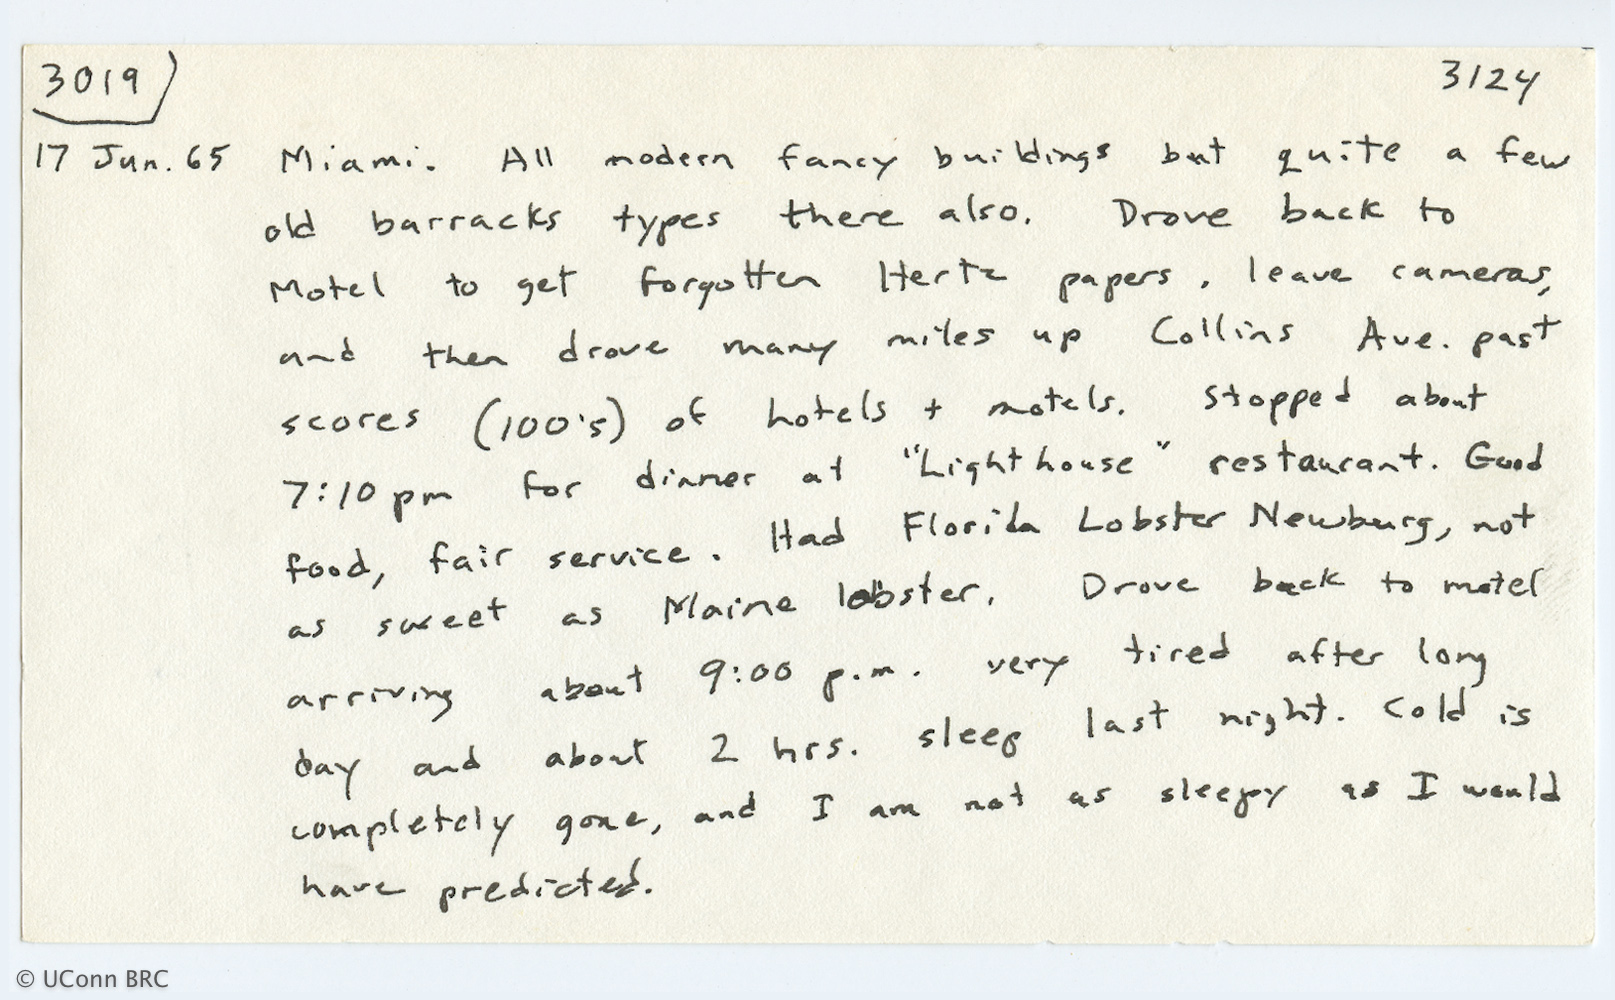 3019 3124
17 Jun. 65 Miami. All modern fancy buildings but quite a few
old barracks types there also. Drove back to
Motel to get forgotten Hertz papers, leave cameras,
and then drove many miles up Collins Ave. past
scores (100's) of hotels + motels. Stopped about
7:10 pm for dinner at "Lighthouse" restaurant. Good
food, fair service. Had Florida Lobster Newburg, not
as sweet as Maine lobster. Drove back to motel
arriving about 9:00 p.m. very tired after long
day and about 2 hrs. sleep last night. Cold is
completely gone, and I am not as sleepy as I would
have predicted.
© UConn BRC